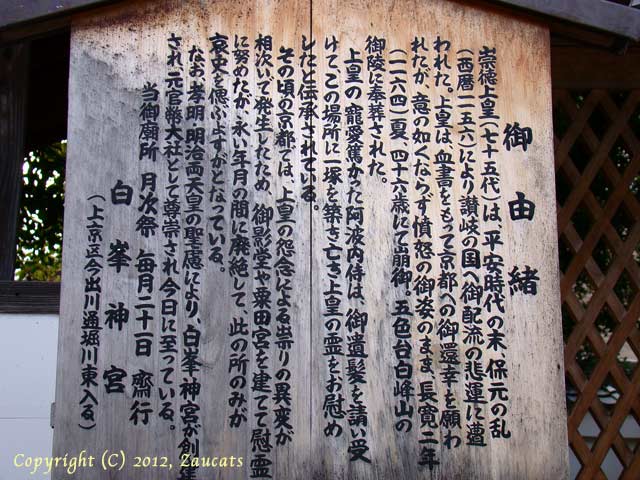 御由緒
崇徳上皇(七十五代)は、平安時代の末、保元の乱
(西暦一一五六)により讃岐の国へ御配流の悲運に遭
われた。上皇は、血書をもって京都への御還幸を願わ
れたが、意の如くならず憤怒の御姿のまま、長寛二年
(一一六四)夏、四十六歳にて崩御。五色台白峰山の
御陵に奉葬された。
上皇の寵愛篤かった阿波内侍は、御遺髪を請い受
けてこの場所に一塚を築き亡き上皇の霊をお慰め
したと伝承されている。
その頃の京都では、上皇の怨念による祟りの異変が
相次いで発生したため、御影堂や粟田宮を建てて慰霊
に努めたが、永い年月の間に廃絶して、此の所のみが
哀史を偲ぶよすがとなっている。
なお、孝明、明治両天皇の聖慮により、白峯神宮が創
され元官幣大社として尊崇され今日に至っている。
当御廟所 月次祭 毎月二十一日 齋行
白峯神宮
(上京区今出川通堀川東入る)
Copyright (C) 2012, Zaucats